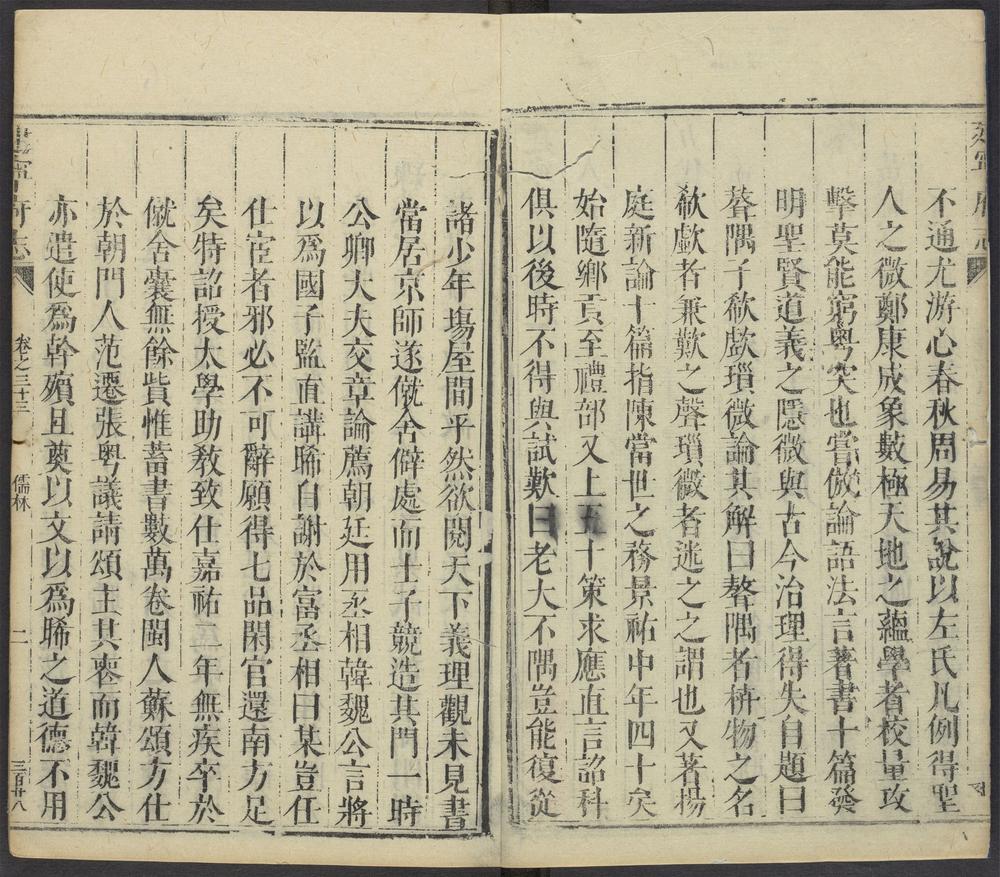 建寧府志
不通尤游心春秋周易其說以左氏凡例得聖
人之微鄭康成象數極天地之蘊學者校量攻
擊莫能窮粤突也嘗倣論語法言著書十篇發
明聖賢道義之隱微與古今治理得失自題曰
聱隅子欷歔瑣微論其解曰聱隅者枿物之名
欷歔者兼歎之聲瑣微者迷之之謂也又著揚
庭新論十篇指陳當世之務景祐中年四十矣
始隨鄉貢至禮部又上五十策求應直言詔科
俱以後時不得與試歎曰老大不隅豈能復從
諸少年塲屋間乎然欲閱天下義理觀未見書
當居京師遂僦舍僻處而士子競造其門一時
公卿大夫交章論薦朝廷用丞相韓魏公言將
以爲國子監直講晞自謝於富丞相曰某豈任
仕宦者邪必不可辭願得七品閑官還南方足
矣特詔授太學助教致仕嘉祐二年無疾卒於
僦舍囊無餘貲惟蓄書數萬卷閩人蘇頌方仕
於朝門人范遷張粤議請頌主其喪而韓魏公
亦遣使爲幹殯且奠以文以爲晞之道德不用
建寧府志
卷之三十三
儒林
二
三百廿八